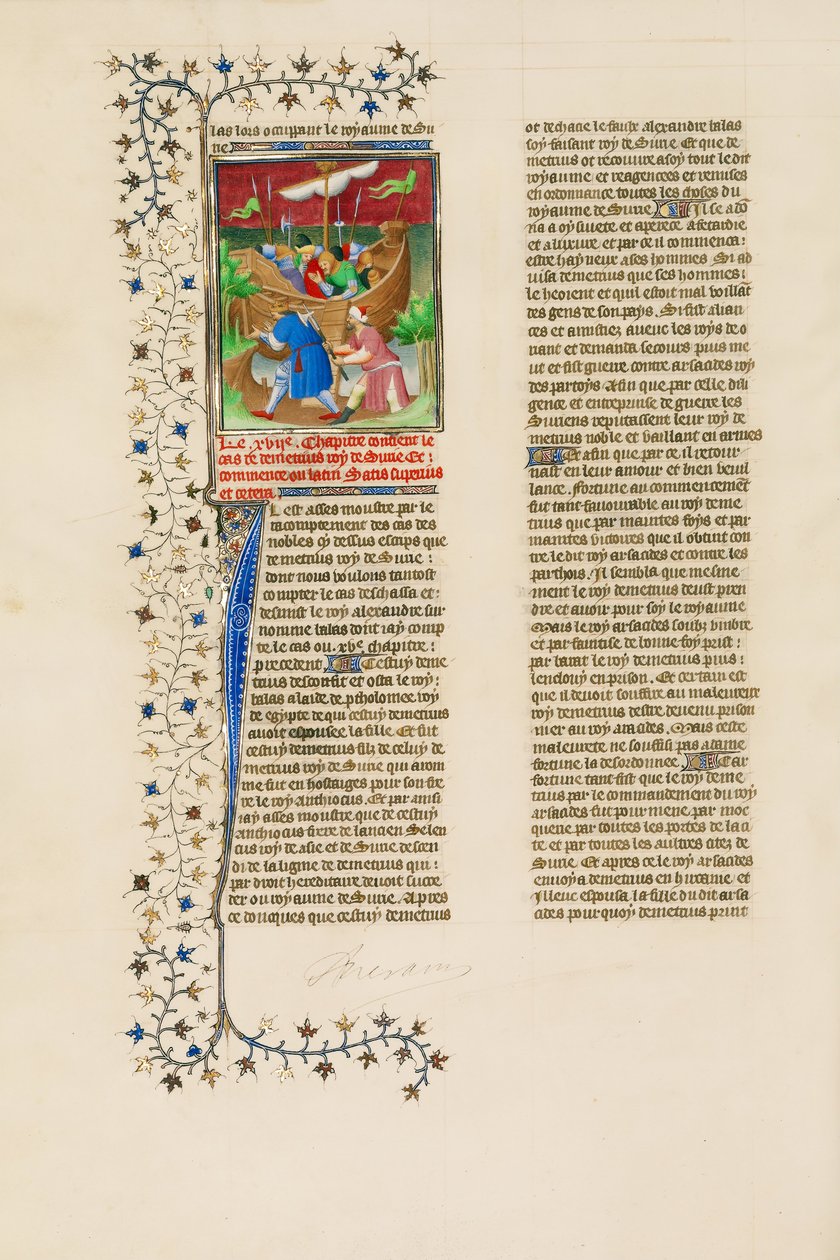 las lors occupant le royaume de Su
rie
Le .xviie. Chapitre contient le
cas de demetrius roy de Surie Et :
commence ou latin Satis superius
et cetera
Il est asses moustre par le
racomptement des cas des
nobles cy dessus escrips que
demetrius roy de Surie :
dont nous voulons tantost
compter le cas deschassa et
desmist le roy alexandre sur
nomme balas dont iay comp
te le cas ou .xve. chapitre :
precedent Cestuy deme
trius desconfit et osta le roy :
balas a laide de ptholomee roy
de egypte de qui cestuy demetrius
auoit espousee la fille. Et fut
cestuy demetrius filz de celuy de
metrius roy de Surie qui a rom
me fut en hostaiges pour son fre
re le roy Anthiocus. Et par ainsi
iay asses moustre que de cestuy
Anthiocus frere de lancien Seleu
cus roy de asie et de Surie descen
di de la ligme de demetrius qui :
par droit hereditaire deuoit succe
der ou royaume de Surie. Apres
ce doncques que cestuy demetrius
ot dechacie le faulx alexandre balas
soy faisant roy de Surie Et que de
metrius ot recouure a soy tout le dit
royaume et reagencees et remises
en ordonnance toutes les choses du
royaume de Surie Il se ado
na a oysiuete et aperece a fetardie
et a luxure et par ce il commenca :
estre hayneux a ses hommes. Si ad
uisa demetrius que ses hommes :
le heoient et quil estoit mal voillant
des gens de son pays. Si fist alian
ces et amistiez auenc les roys de o
riant et demanda secours puis me
ut et fist guerre contre arsacides roy
des partoys Afin que par celle dili
gence et entreprinse de guerre les
Suriens reputassent leur roy de
metrius noble et vaillant en armes
Et afin que par ce il retour
nast en leur amour et bien veul
lance. Fortune au commencement
fut tant fauourable au roy deme
trius que par maintes foys et par
maintes victoires que il obtint con
tre le dit roy arsacides et contre les
parthois. Il sembla que mesme
ment le roy demetrius deust pren
dre et auoir pour soy le royaume
Mais le roy arsacides soubz vmbre
et par faintise de bonne foy prist :
par barat le roy demetrius puis :
lenclouy en prison. Et certain est
que il deuoit souffire au maleureux
roy demetrius destre deuenu prison
nier au roy arsacides. Mais ceste
maleurete ne souffisi pas a dame
fortune la desordonnee. Car
fortune tant fist que le roy deme
trius par le commandement du roy
arsacides fut pour mene par moc
querie par toutes les portes de la ci
te et par toutes les aultres citez de
Surie. Et apres ce le roy arsacides
enuoya demetrius en hircanie et
illeuc espousa la fille du dit arsa
cides pour quoy demetrius print